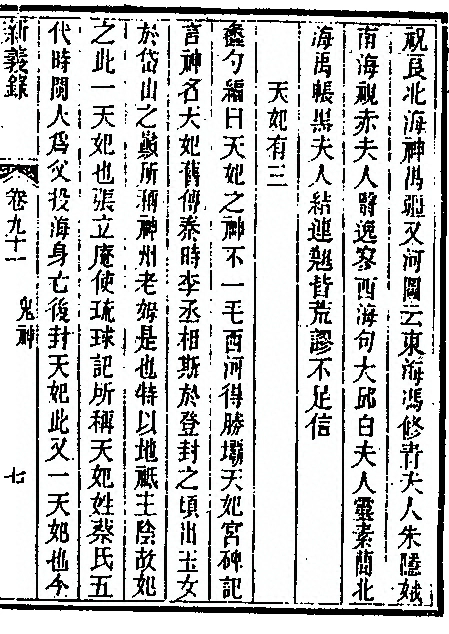 視良北海神禺彊又河圖云東海馮修青夫人朱隱娥
南海視赤夫人翳逸寥西海句大邱白夫人靈素簡北
海禹帳黑夫人結連翹皆荒謬不足信
天妃有三
蠡勺編曰天妃之神不一毛西河得勝壩天妃宮碑記
言神名天妃舊傳秦時李丞相斯於登封之頃出玉女
於岱山之巔所稱神州老姆是也特以地祗主陰故妃
之此一天妃也張立庵使琉球記所稱天妃姓蔡氏五
代時閩人爲父投海身亡後封天妃此又一天妃也今
新義錄 卷九十一 鬼神 七